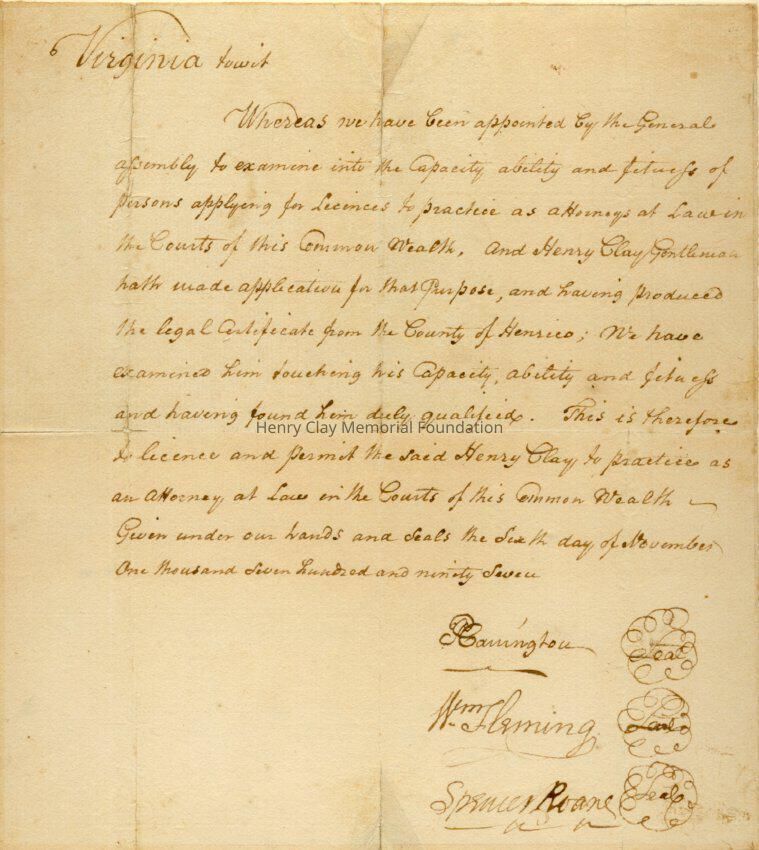 Virginia towit
Whereas we have been appointed by the General
assembly to examine into the Capacity ability and fitness of
persons applying for Licences to practice as attorneys at Law in
the Courts of this Common Wealth, and Henry Clay Gentleman
hath made application for that Purpose, and having produced
the legal Certificate from the County of Henrico; We have
examined him touching his Capacity, ability and fitness
and having found him duly qualified. This is therefore
Henry Clay Memorial Foundation
to licence and permit the said Henry Clay, to practice as
an attorney at Law in the Courts of this Common Wealth
Given under our hands and Seals the Sixth day of November
One thousand Seven hundred and ninety Seven
Seal
Wm. Fleming Seal
Spencer Roane Seal